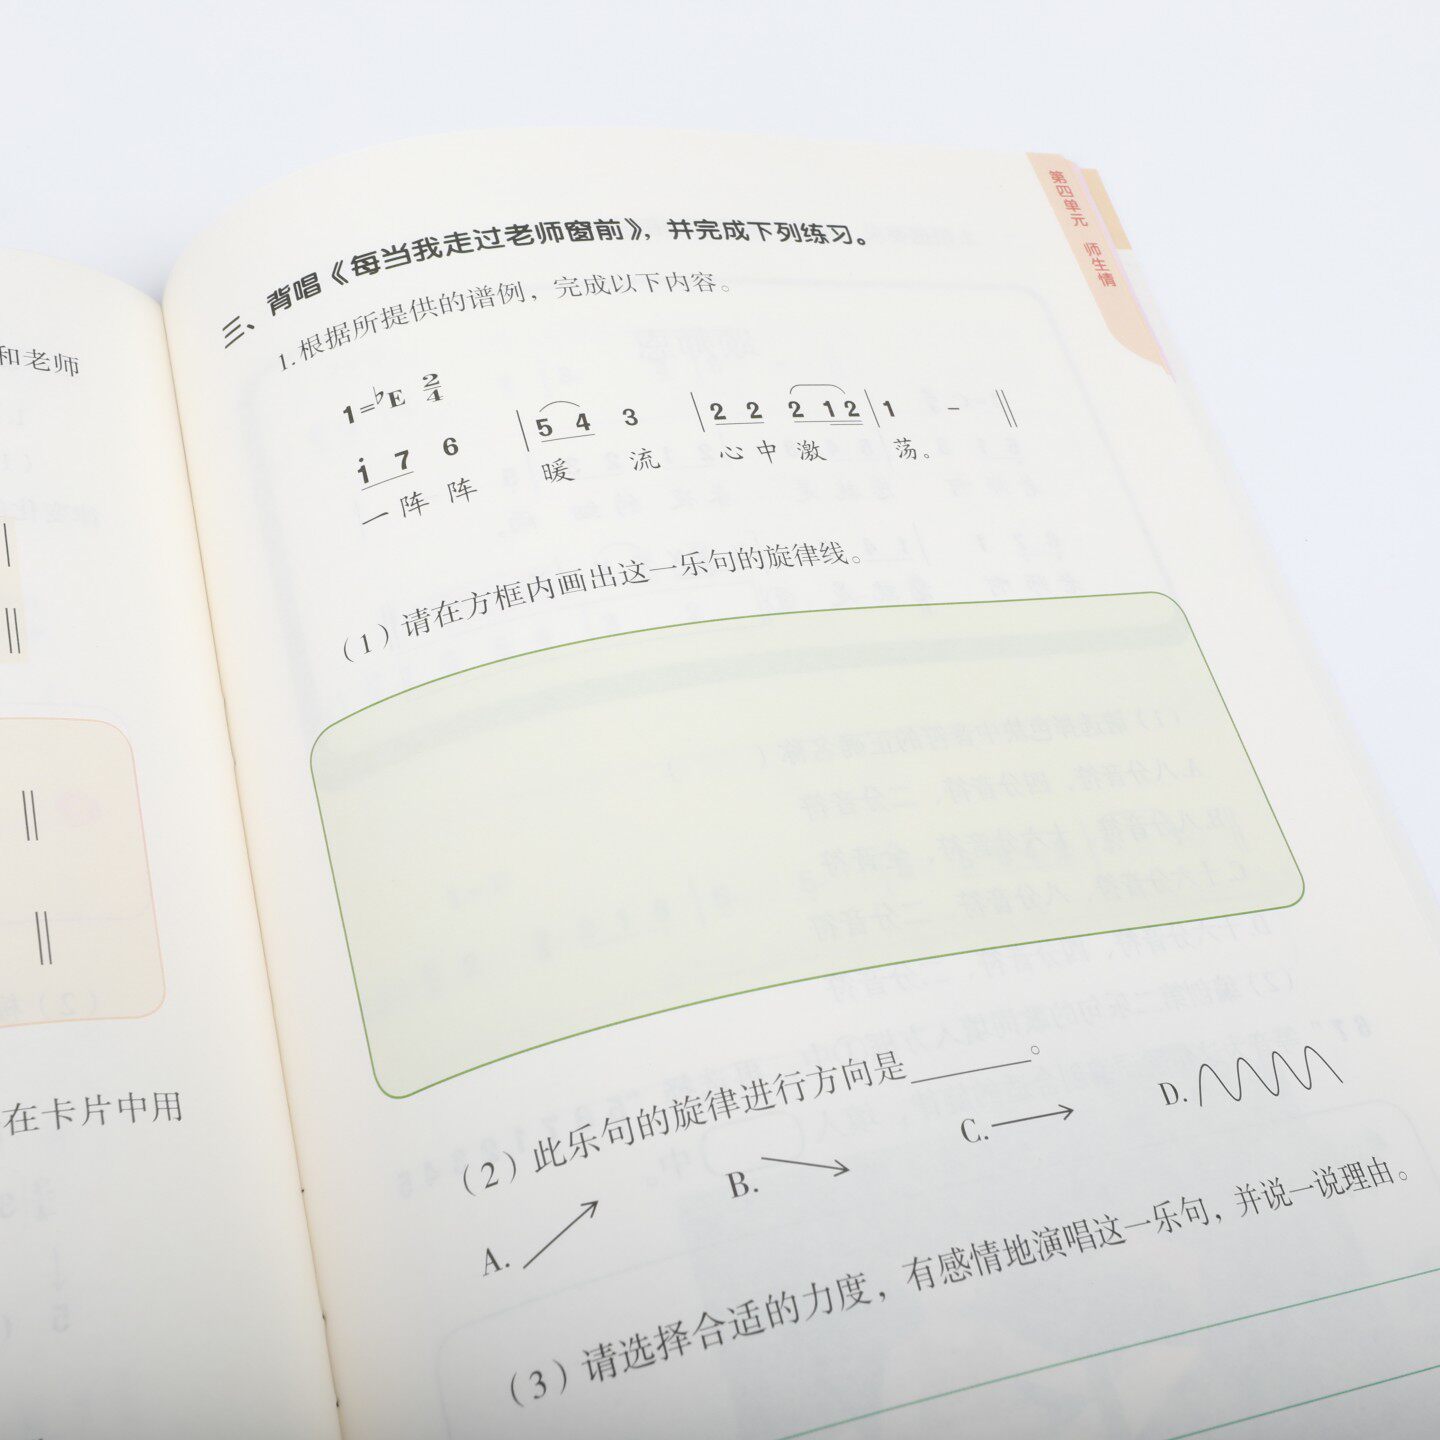 第四单元 师生情
三、背唱《每当我走过老师窗前》，并完成下列练习。
1.根据所提供的谱例，完成以下内容。
1=♭E 2/4
1̇ 7 6 | 5 4 3 | 2 2 2 1 2 | 1 - ‖
一 阵 阵 暖 流 心 中 激 荡。
（1）请在方框内画出这一乐句的旋律线。
（2）此乐句的旋律进行方向是______。
A. B. C. D.
（3）请选择合适的力度，有感情地演唱这一乐句，并说一说理由。
和老师
在卡片中用